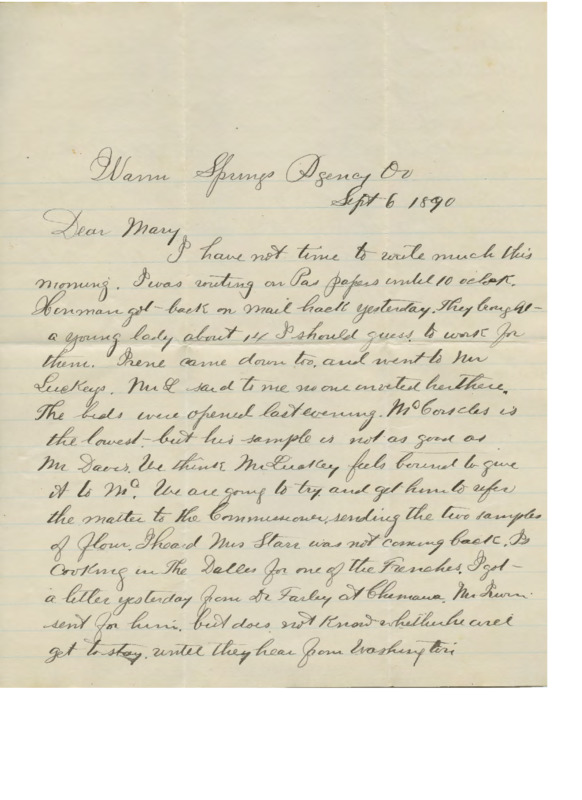 Warm Springs Agency Or
Sept 6 1890
Dear Mary
I have not time to write much this
morning. I was writing on Pas papers until 10 oclock.
Henman got back on mail hack yesterday. They brought
a young lady about 14 I should guess, to work for
them. Irene came down too, and went to Mr
Luckeys. Mr L said to me no one invited her there.
The bids were opened last evening. McCorcles is
the lowest - but his sample is not as good as
Mr Davis. We think Mr Luckey feels bound to give
it to Mc. We are going to try and get him to refer
the matter to the Commissioner, sending the two samples
of flour. I heard Mrs Starr was not coming back. Is
cooking in The Dalles for one of the Frenches. I got
a letter yesterday from Dr Farley at Chemawa. Mr Irwin
sent for him, but does not know whether he will
get to stay, until they hear from Washington